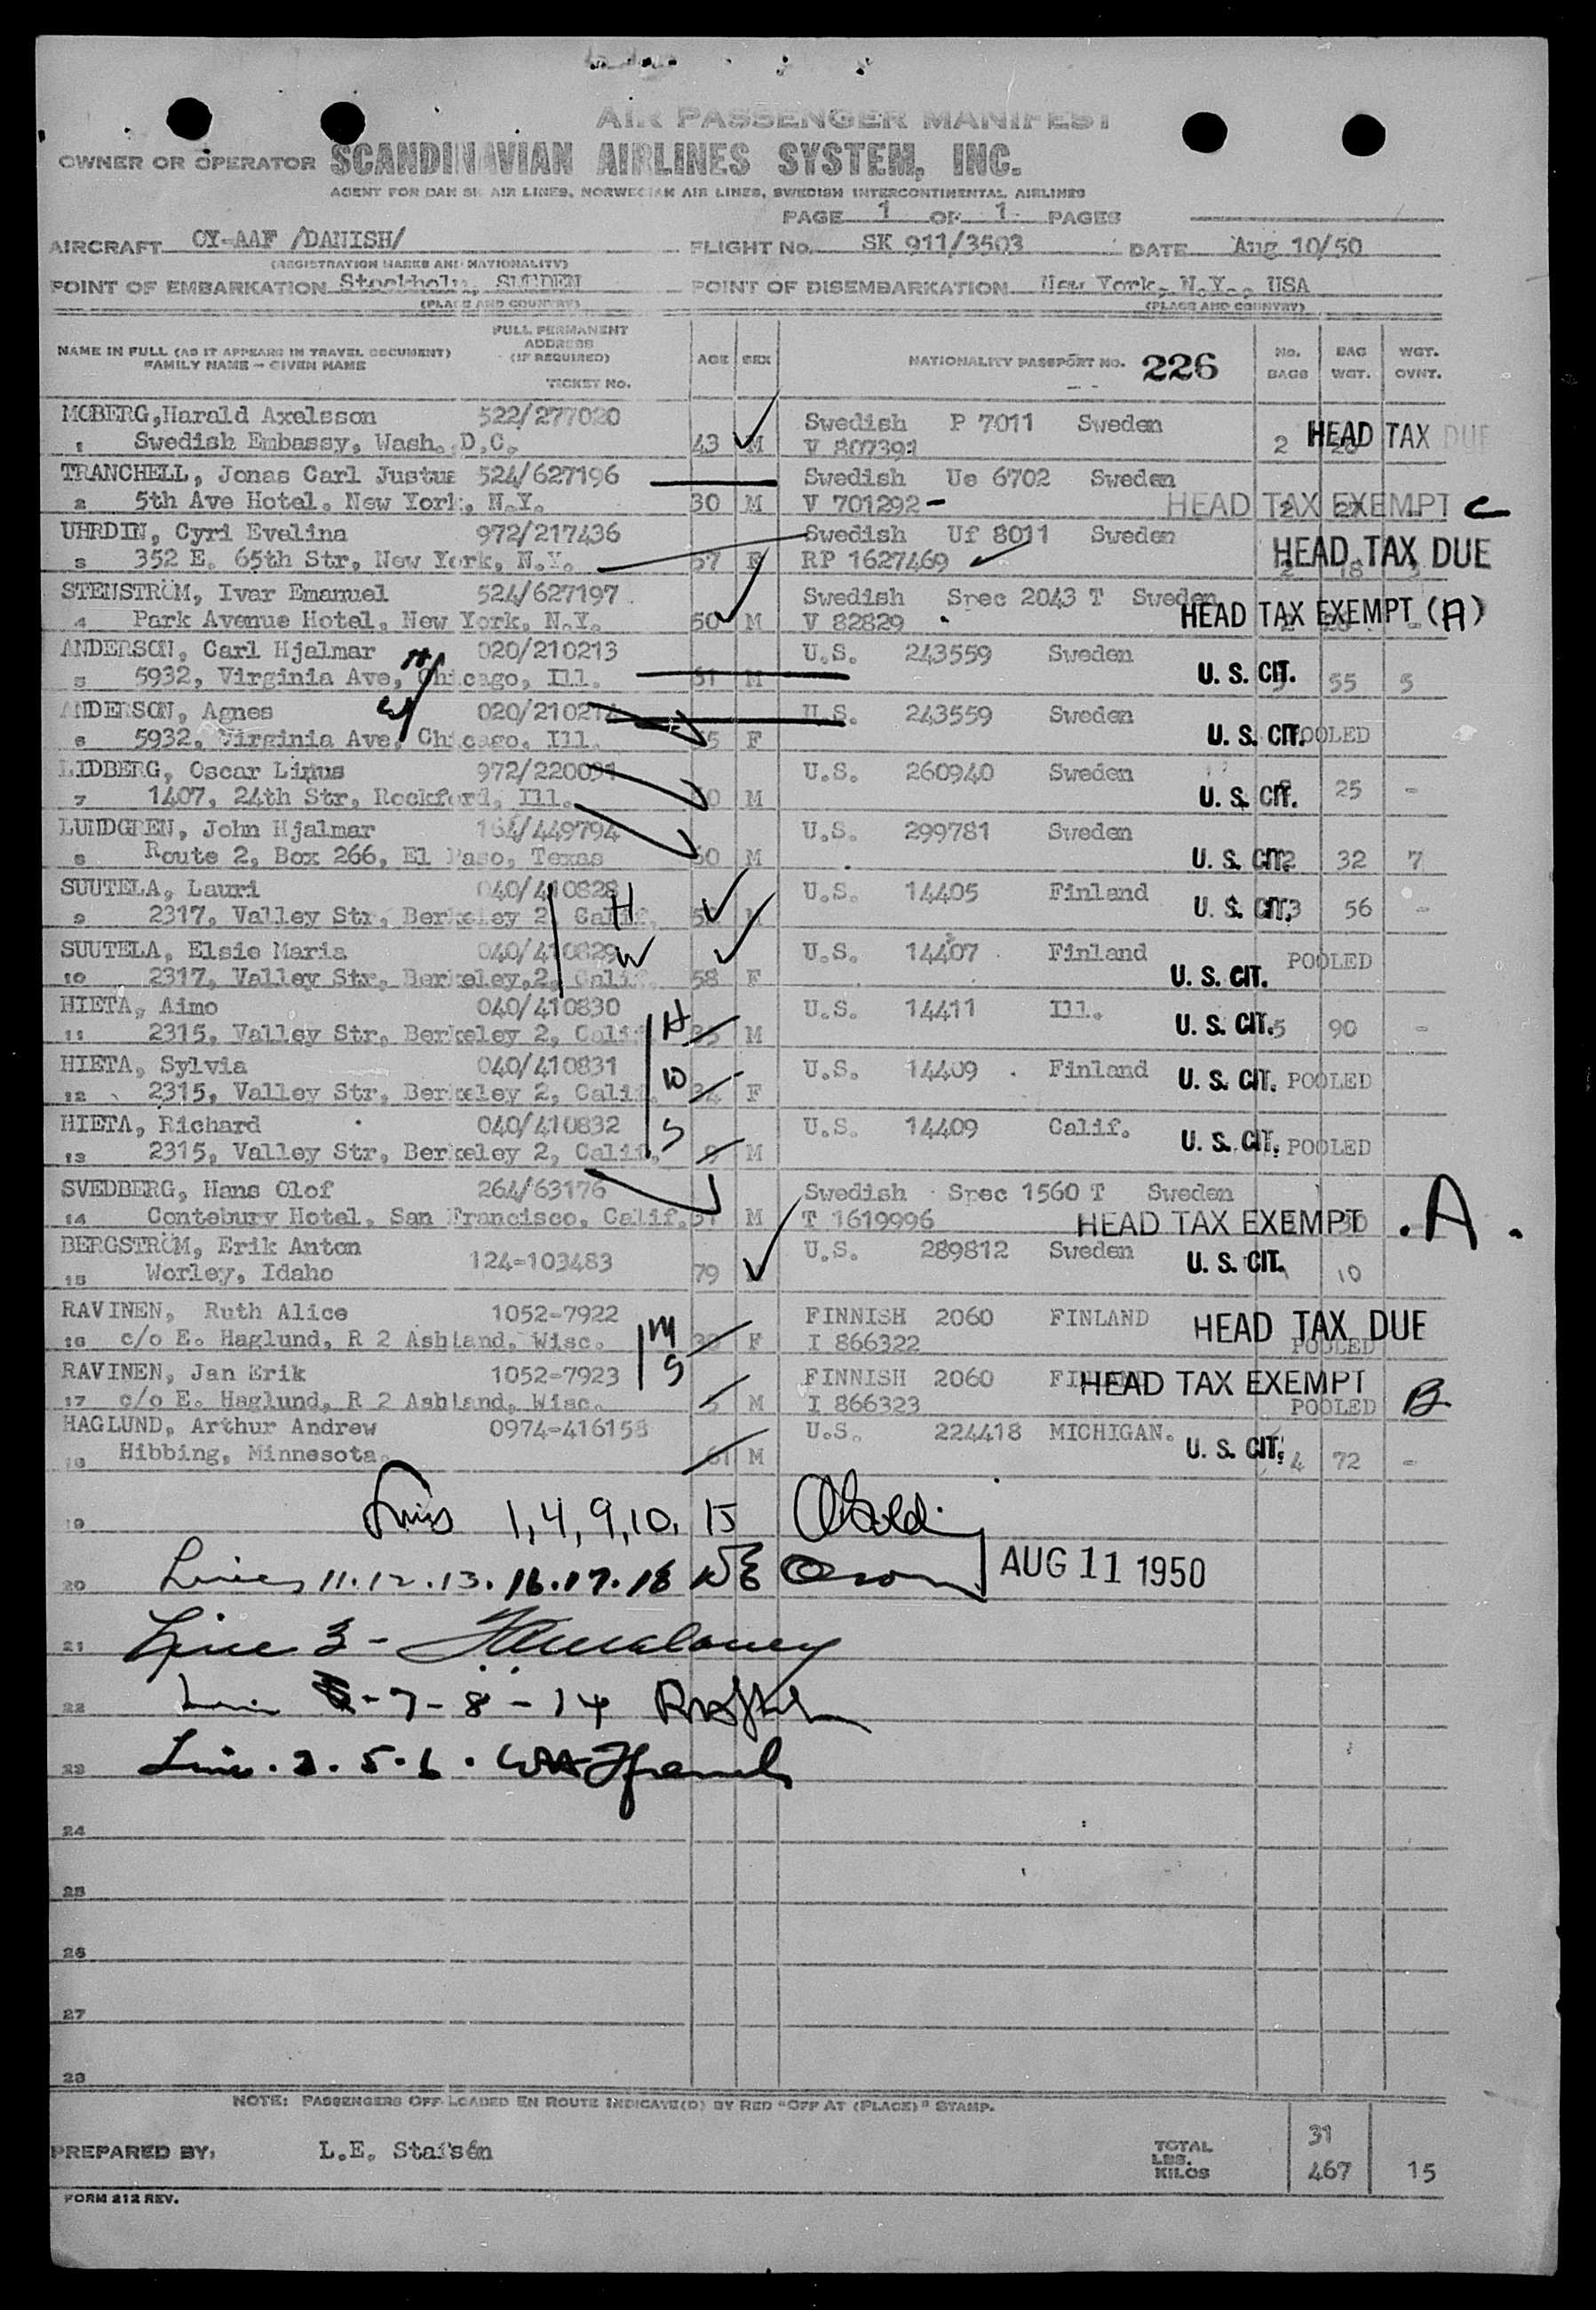 AIR PASSENGER MANIFEST
OWNER OR OPERATOR SCANDINAVIAN AIRLINES SYSTEM, INC.
AGENT FOR DANISH AIR LINES, NORWEGIAN AIR LINES, SWEDISH INTERCONTINENTAL AIRLINES
PAGE 1 OF 1 PAGES
AIRCRAFT OY-AAF /DANISH/ FLIGHT No. SK 911/3503 DATE Aug 10/50
(REGISTRATION MARKS AND NATIONALITY)
POINT OF EMBARKATION Stockholm, SWEDEN POINT OF DISEMBARKATION New York, N.Y., USA
(PLACE AND COUNTRY) (PLACE AND COUNTRY)
NAME IN FULL (AS IT APPEARS IN TRAVEL DOCUMENT) FAMILY NAME - GIVEN NAME FULL PERMANENT ADDRESS (IF REQUIRED) TICKET NO. AGE SEX NATIONALITY PASSPORT NO. 226 NO. BAGS BAG WGT. WGT. OVNT.
MOBERG, Harald Axelsson 522/277020 Swedish P 7011 Sweden
1 Swedish Embassy, Wash. D.C. 43 M V 807391 2 HEAD TAX DUE
TRANCHELL, Jonas Carl Justus 524/627196 Swedish Ue 6702 Sweden
2 5th Ave Hotel, New York, N.Y. 30 M V 701292 - HEAD TAX EXEMPT C
UHRDIN, Cyri Evelina 972/217436 Swedish Uf 8011 Sweden
3 352 E. 65th Str, New York, N.Y. 57 F RP 1627469 HEAD TAX DUE 2 18
STENSTRÖM, Ivar Emanuel 524/627197 Swedish Spec 2043 T Sweden
4 Park Avenue Hotel, New York, N.Y. 50 M V 82829 HEAD TAX EXEMPT (A)
ANDERSON, Carl Hjalmar H 020/210213 U.S. 243559 Sweden
5 5932, Virginia Ave, Chicago, Ill. 61 M U. S. CIT. 55 5
ANDERSON, Agnes W 020/210214 U.S. 243559 Sweden
6 5932, Virginia Ave, Chicago, Ill. F U. S. CIT. POOLED
LIDBERG, Oscar Linus 972/220091 U.S. 260940 Sweden
7 1407, 24th Str, Rockford, Ill. M U. S. CIT. 25 -
LUNDGREN, John Hjalmar 164/449794 U.S. 299781 Sweden
8 Route 2, Box 266, El Paso, Texas 60 M U. S. CIT. 2 32 7
SUUTELA, Lauri 040/410828 H U.S. 14405 Finland
9 2317, Valley Str, Berkeley 2, Calif. M U. S. CIT. 3 56 -
SUUTELA, Elsie Maria 040/410829 W U.S. 14407 Finland
10 2317, Valley Str, Berkeley, 2, Calif. 58 F U. S. CIT. POOLED
HIETA, Aimo 040/410830 H U.S. 14411 Ill.
11 2315, Valley Str, Berkeley 2, Calif. 35 M U. S. CIT. 5 90 -
HIETA, Sylvia 040/410831 W U.S. 14409 Finland
12 2315, Valley Str, Berkeley 2, Calif. 34 F U. S. CIT. POOLED
HIETA, Richard 040/410832 S U.S. 14409 Calif.
13 2315, Valley Str, Berkeley 2, Calif. 9 M U. S. CIT. POOLED
SVEDBERG, Hans Olof 264/63176 Swedish Spec 1560 T Sweden
14 Contebury Hotel, San Francisco, Calif. M T 1619996 HEAD TAX EXEMPT 30 .A.
BERGSTRÖM, Erik Anton 124-103483 U.S. 289812 Sweden
15 Worley, Idaho 79 U. S. CIT. 10
RAVINEN, Ruth Alice 1052-7922 M FINNISH 2060 FINLAND
16 c/o E. Haglund, R 2 Ashland, Wisc. F I 866322 HEAD TAX DUE POOLED
RAVINEN, Jan Erik 1052-7923 S FINNISH 2060 FINLAND
17 c/o E. Haglund, R 2 Ashland, Wisc. M I 866323 HEAD TAX EXEMPT POOLED B
HAGLUND, Arthur Andrew 0974-416158 U.S. 224418 MICHIGAN.
18 Hibbing, Minnesota. 61 M U. S. CIT. 4 72 -
19 Lines 1, 4, 9, 10, 15
20 Lines 11.12.13.16.17.18 AUG 11 1950
21 Line 3 -
22 Line -7-8-14
23 Line. 2.5.6.
24
25
26
27
28
NOTE: PASSENGERS OFF-LOADED EN ROUTE INDICATE(D) BY RED "OFF AT (PLACE)" STAMP.
PREPARED BY: L.E. TOTAL LBS. KILOS 31 467 15
FORM 212 REV.